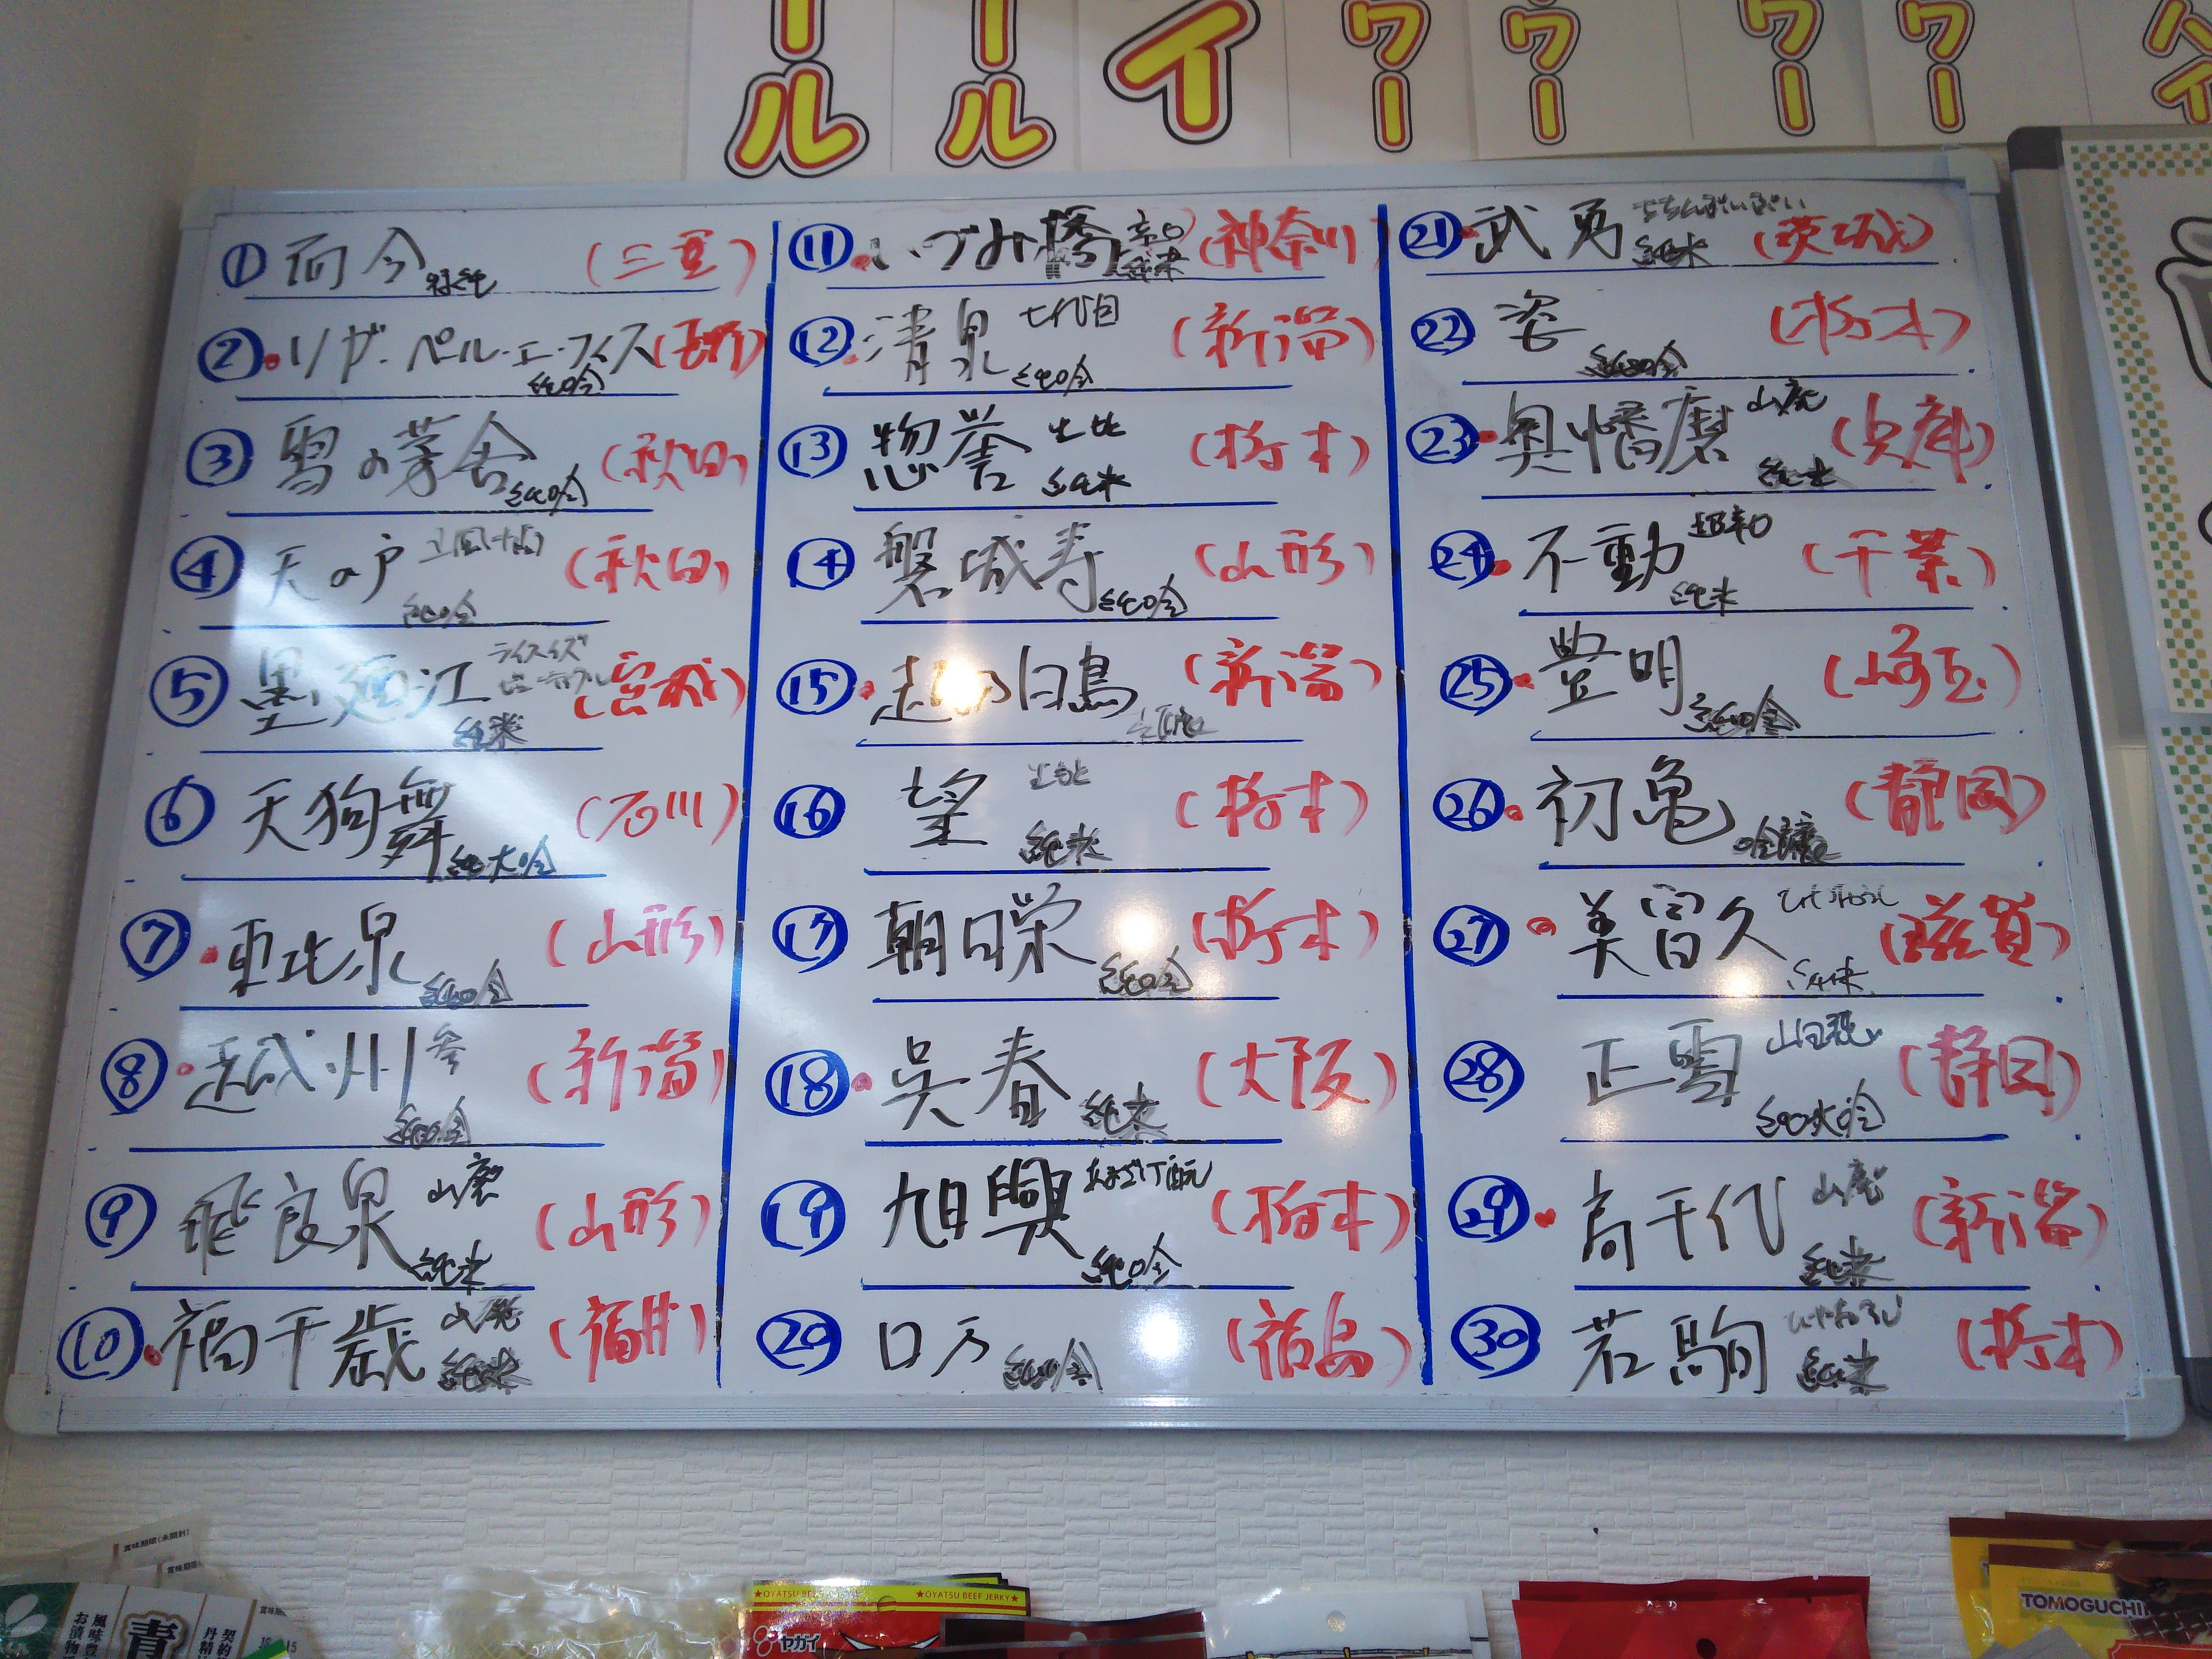 ール
ール
イ
ワー
ウー
ワー
ワー
ハイ
① 而今 特純 (三重)
② リザーペル・エ・フィス 純吟 (長野)
③ 雪の茅舎 純吟 (秋田)
④ 天の戸 純吟 (秋田)
⑤ 墨廼江 ライスイズビューティフル 純米 (宮城)
⑥ 天狗舞 純大吟 (石川)
⑦ 東北泉 純吟 (山形)
⑧ 越州 参 純吟 (新潟)
⑨ 飛良泉 山廃 純米 (山形)
⑩ 福千歳 山廃 純米 (福井)
⑪ いづみ橋 辛口 純米 (神奈川)
⑫ 清泉 七代目 純吟 (新潟)
⑬ 惣誉 生酛 純米 (栃木)
⑭ 磐城寿 純吟 (山形)
⑮ 越乃白鳥 (新潟)
⑯ 望 生もと 純米 (栃木)
⑰ 朝日栄 純吟 (栃木)
⑱ 呉春 純米 (大阪)
⑲ 旭興 純吟 (栃木)
⑳ ロ万 純吟 (福島)
㉑ 武勇 ちちんぷいぷい 純米 (茨城)
㉒ 姿 純吟 (栃木)
㉓ 奥播磨 山廃 純米 (兵庫)
㉔ 不動 超辛口 純米 (千葉)
㉕ 豊明 純吟 (埼玉)
㉖ 初亀 吟醸 (静岡)
㉗ 美冨久 純米 (滋賀)
㉘ 正雪 純大吟 (静岡)
㉙ 高千代 山廃 純米 (新潟)
㉚ 若駒 ひやおろし 純米 (栃木)
賞味期限(未開封)
賞味期限
風味豊
お漬物
青
契約
丹精
★OYATSU BEEF JERKY★
ヤガイ
TOMOGUCHI